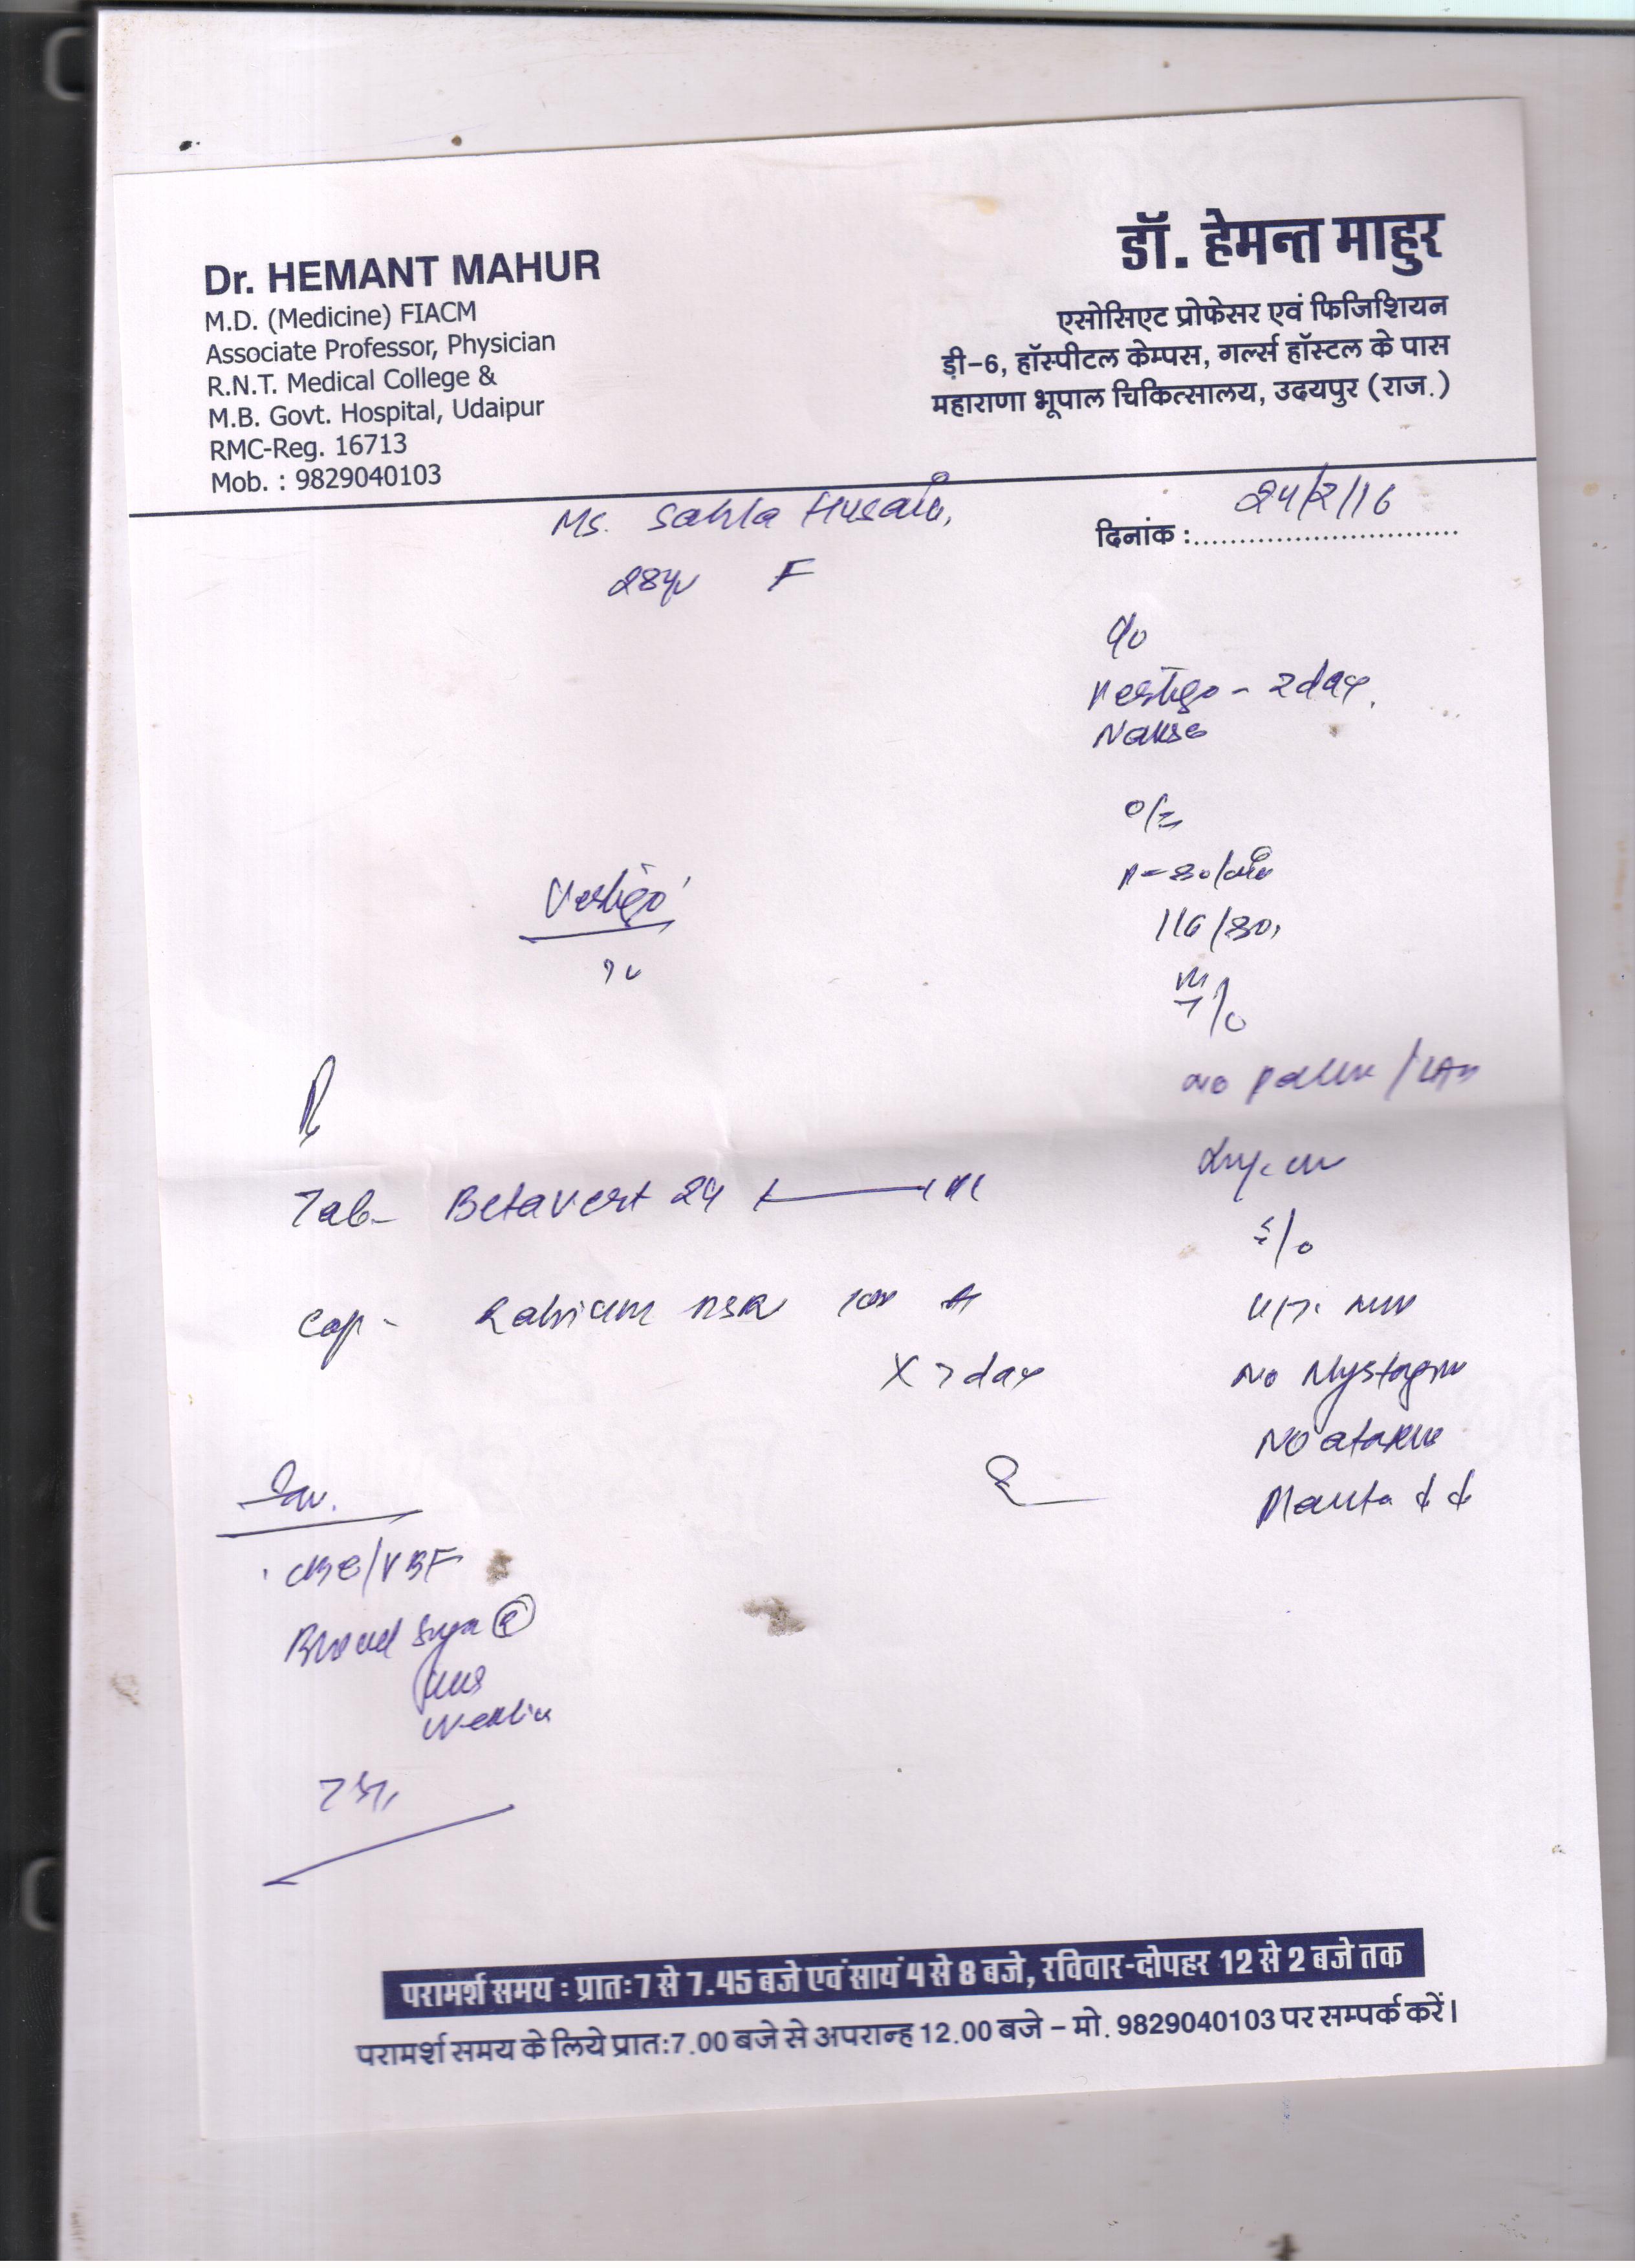 Dr. HEMANT MAHUR
M.D. (Medicine) FIACM
Associate Professor, Physician
R.N.T. Medical College &
M.B. Govt. Hospital, Udaipur
RMC-Reg. 16713
Mob. : 9829040103
डॉ. हेमन्त माहुर
एसोसिएट प्रोफेसर एवं फिजिशियन
ड़ी-6, हॉस्पीटल केम्पस, गर्ल्स हॉस्टल के पास
महाराणा भूपाल चिकित्सालय, उदयपुर (राज.)
दिनांक :.............................. 24/2/16
Ms. Husain,
28yr F
c/o
Vertigo - 2day.
o/E
P-80/min
116/80,
No / LAN
No Nystagmus
No ataxia
Vertigo
R
Tab- Betavert 24
Cap-
X 7 day
Inv.
CBC/PBF
Blood Sugar (R)
परामर्श समय : प्रातः7 से 7.45 बजे एवं सायं 4 से 8 बजे, रविवार-दोपहर 12 से 2 बजे तक
परामर्श समय के लिये प्रातः7.00 बजे से अपरान्ह 12.00 बजे – मो. 9829040103 पर सम्पर्क करें।